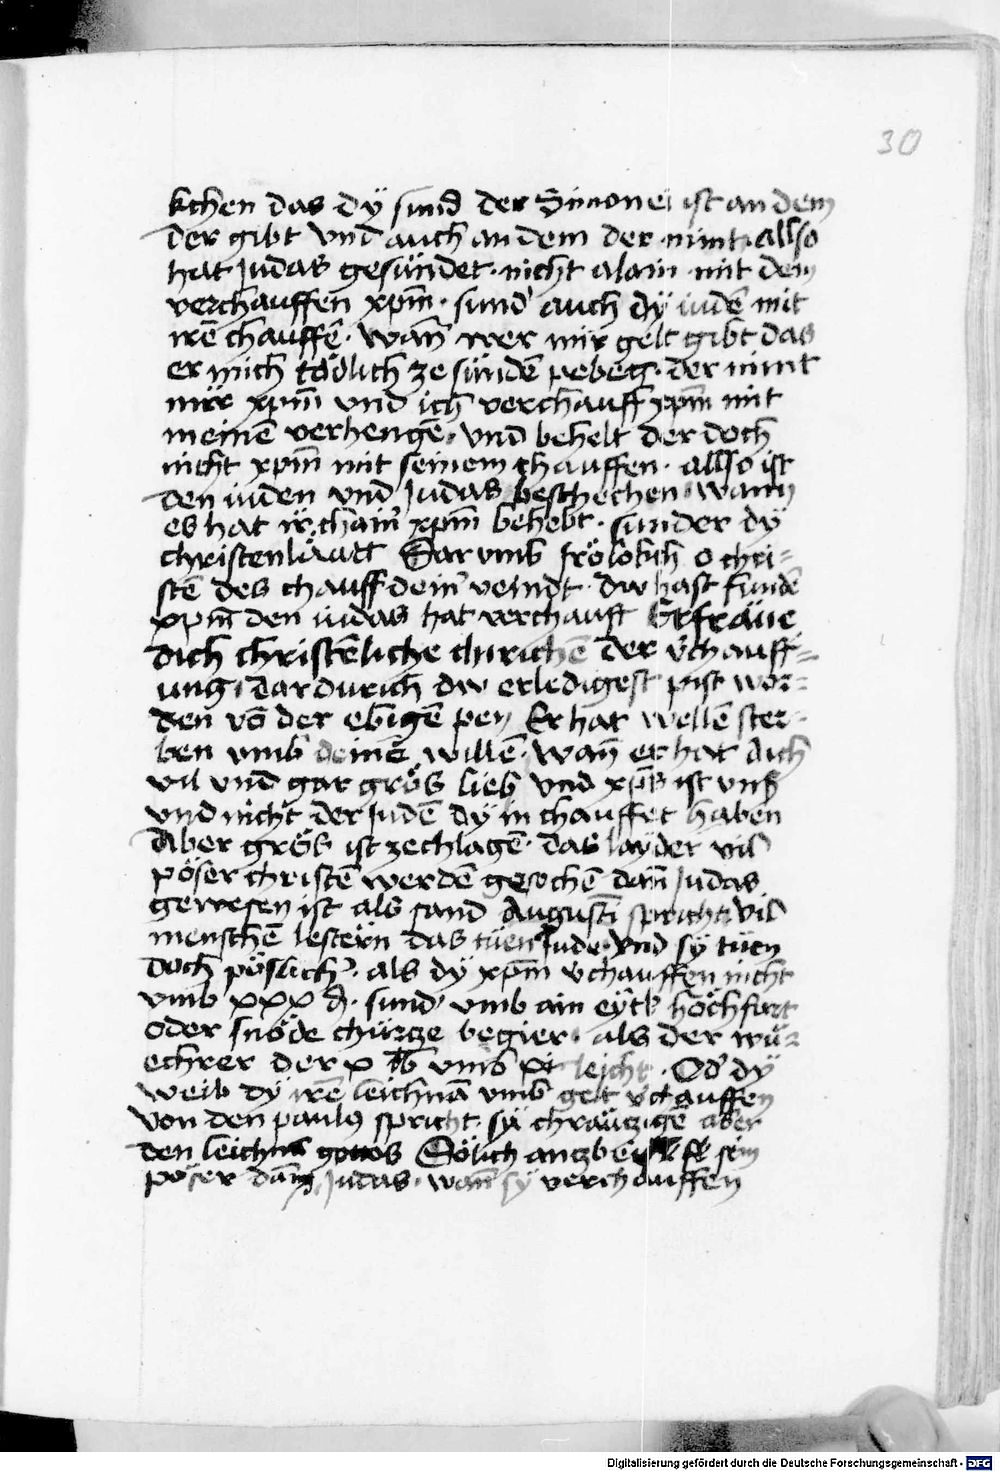 30
kchen das dÿ sund der Simonei ist an dem
der gibt vnd auch an dem der nimt. allso
hat Judas gesündet. nicht alain mit dem
verchauffen xpm̄. sund' auch dÿ iudē mit
irē chauffē. wan̄ wer mir gelt gibt das
er mich tödlich ze sündē pebeg. der nimt
mir xpm̄ vnd ich verchauff xpm̄ mit
meinē verhengē. vnd behelt der doch
nicht xpm̄ mit seinem chauffen. allso ist
den iuden vnd Judas beschechen. wann
es hat ir chain' xpm̄ behebt. sunder dÿ
christenläutt Darumb frölokch o chri=
stē des chauff dein' veindt. dw hast fundē
xpm̄ den iudas hat verchaufft Erfräue
dich christēliche chirichē der v'chauff=
ung. dar durich dw erledigest pist wor=
den vō der ebigē pey Er hat wellē ster=
ben vmb deinē willē. wan̄ er hat dich
vil vnd gar grös lieb vnd xp̄s ist vns
vnd nicht der Judē dÿ in chauffet haben
Aber grös ist ze chlagē. das layder vil
pöser christē werdē gesechē dan̄ Judas
gewesen ist als sand Augustī spricht. vil
menschē lestern das tüen Jude. vnd sÿ tüen
doch pöslich'. als dÿ xpm̄ v'chauffen nicht
vmb xxx d. sund' vmb ain eytl hochfart
oder snöde chürtze begier. als der wu=
echrer der x lb vmb xi leicht. Od' dÿ
weib dÿ irē leichnā vmb gelt v'chauffen
von den paulus spricht. sÿ chräutzigē aber
den leichnā gottes Sölich sein
pöser dan̄ Judas. wan̄ sÿ verchauffen
Digitalisierung gefördert durch die Deutsche Forschungsgemeinschaft - DFG